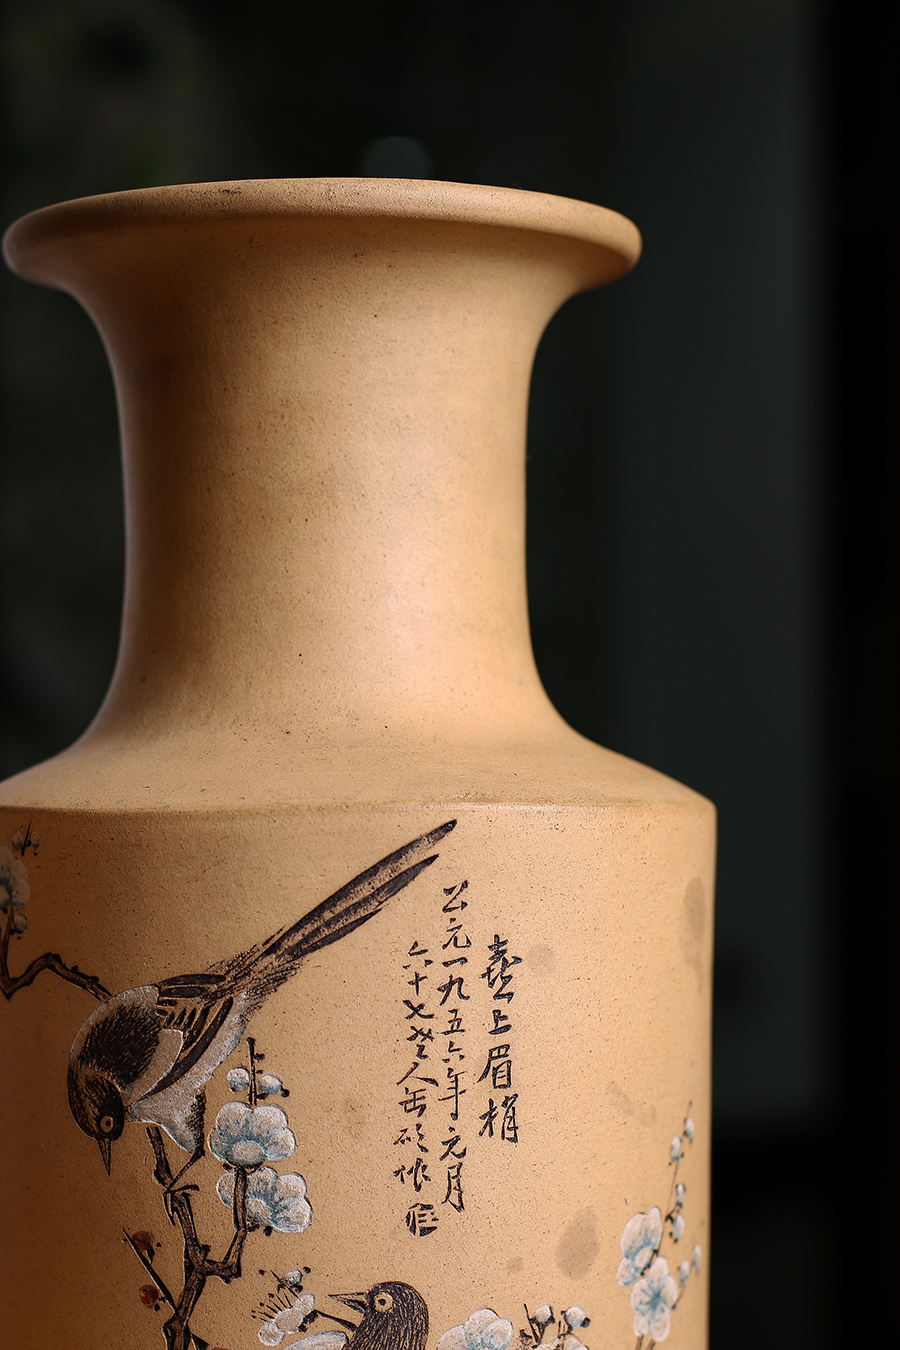 喜上眉梢
公元一九五六年元月
六十七叟人缶硕作